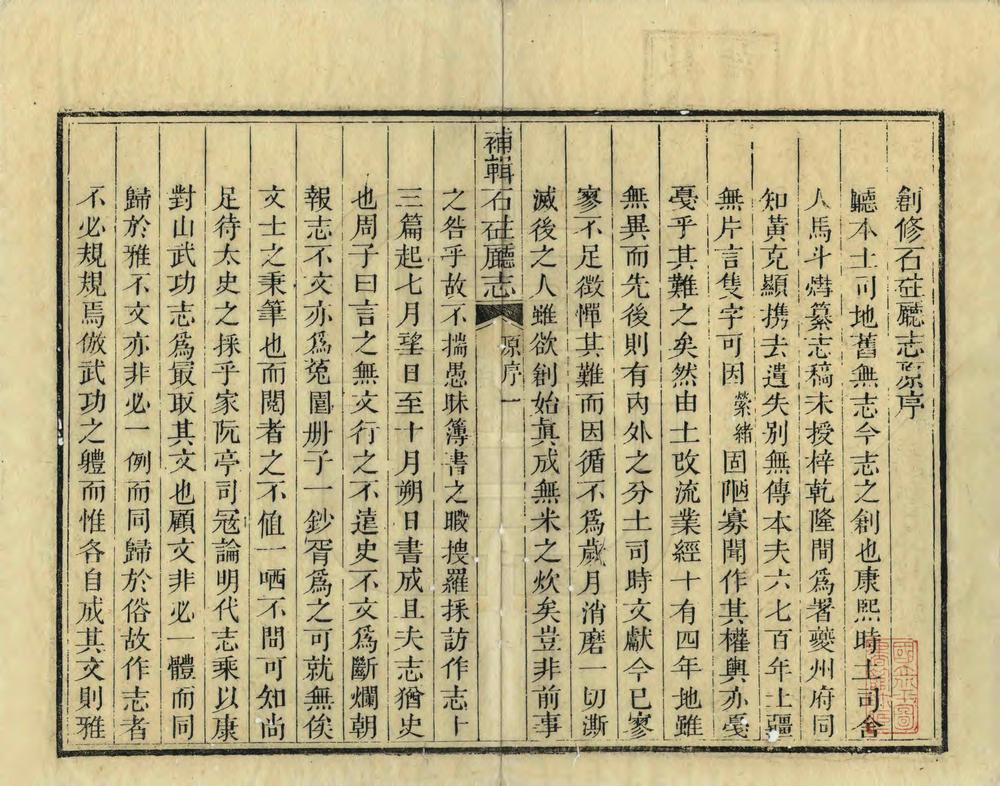 創修石砫廳志原序
廳本土司地舊無志今志之創也康熙時土司舍
人馬斗𤍽纂志稿未授梓乾隆間爲署夔州府同
知黃克顯携去遺失別無傳本夫六七百年土疆
無片言隻字可因縈緒固陋寡聞作其權輿亦戞
戞乎其難之矣然由土改流業經十有四年地雖
無異而先後則有內外之分土司時文獻今已寥
寥不足徵憚其難而因循不爲歲月消磨一切澌
滅後之人雖欲創始眞成無米之炊矣豈非前事
補輯石砫廳志
原序 一
之咎乎故不揣愚昧簿書之暇搜羅採訪作志十
三篇起七月望日至十月朔日書成且夫志猶史
也周子曰言之無文行之不遠史不文爲斷爛朝
報志不文亦爲兔園册子一鈔胥爲之可就無俟
文士之秉筆也而閱者之不值一哂不問可知尚
足待太史之採乎家阮亭司寇論明代志乘以康
對山武功志爲最取其文也顧文非必一體而同
歸於雅不文亦非必一例而同歸於俗故作志者
不必規規焉倣武功之體而惟各自成其文則雅